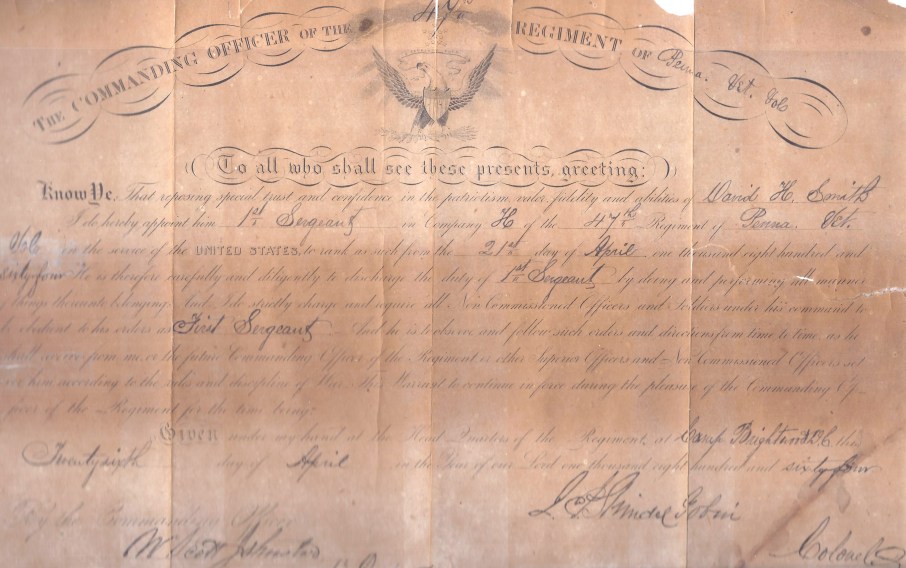 47th
THE COMMANDING OFFICER OF THE REGIMENT OF Penna. Vet. Vols
To all who shall see these presents, greeting:
Know Ye, That reposing special trust and confidence in the patriotism, valor, fidelity and abilities of David H. Smith
I do hereby appoint him 1st Sergeant in Company H of the 47th Regiment of Penna. Vet.
Vols in the service of the UNITED STATES, to rank as such from the 21st day of April one thousand eight hundred and
sixty four He is therefore carefully and diligently to discharge the duty of 1st Sergeant by doing and performing all manner
of things thereunto belonging. And I do strictly charge and require all Non Commissioned Officers and Soldiers under his command to
be obedient to his orders as First Sergeant And he is to observe and follow such orders and directions from time to time, as he
shall receive from me, or the future Commanding Officer of the Regiment or other Superior Officers and Non Commissioned Officers set
over him according to the rules and discipline of War. This Warrant to continue in force during the pleasure of the Commanding Of-
ficer of the Regiment for the time being.
Given under my hand at the Head Quarters of the Regiment, at Camp Brightwood DC this
Twenty sixth day of April in the Year of our Lord one thousand eight hundred and sixty four
By the Commanding Officer
Gobin
W Scott Johnston
Colonel